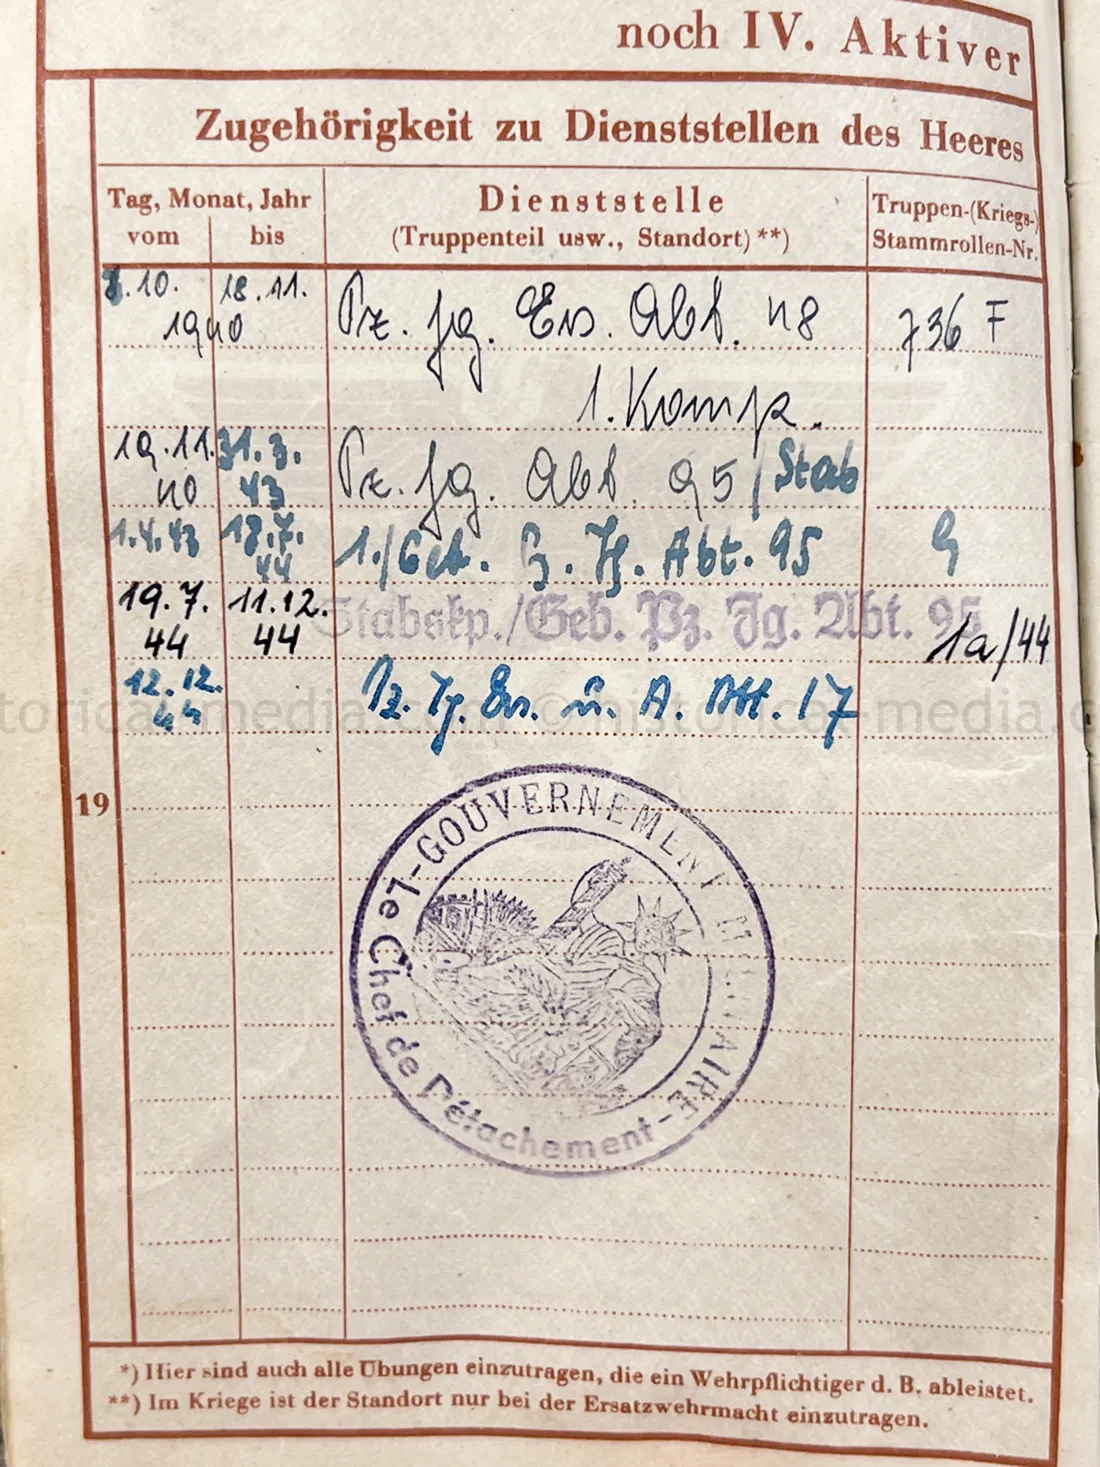 noch IV. Aktiver
Zugehörigkeit zu Dienststellen des Heeres
Tag, Monat, Jahr
vom bis
Dienststelle
(Truppenteil usw., Standort) **)
Truppen-(Kriegs-)
Stammrollen-Nr.
.10. 18.11. Pz. Jg. Ers. Abt. 48 736 F
1940
1. Komp.
19.11. 31.3. Pz. Jg. Abt. 95 / Stab
40 43
1.4.43 18.7. 1./Geb. Pz. Jg. Abt. 95 9
44
19.7. 11.12. Stabskp./Geb. Pz. Jg. Abt. 95 1a/44
44 44
12.12. Pz. Jg. Ers. u. A. Abt. 17
44
19
-GOUVERNEMENT MILITAIRE-
Le Chef de Détachement
*) Hier sind auch alle Übungen einzutragen, die ein Wehrpflichtiger d. B. ableistet.
**) Im Kriege ist der Standort nur bei der Ersatzwehrmacht einzutragen.
© historical-media.c